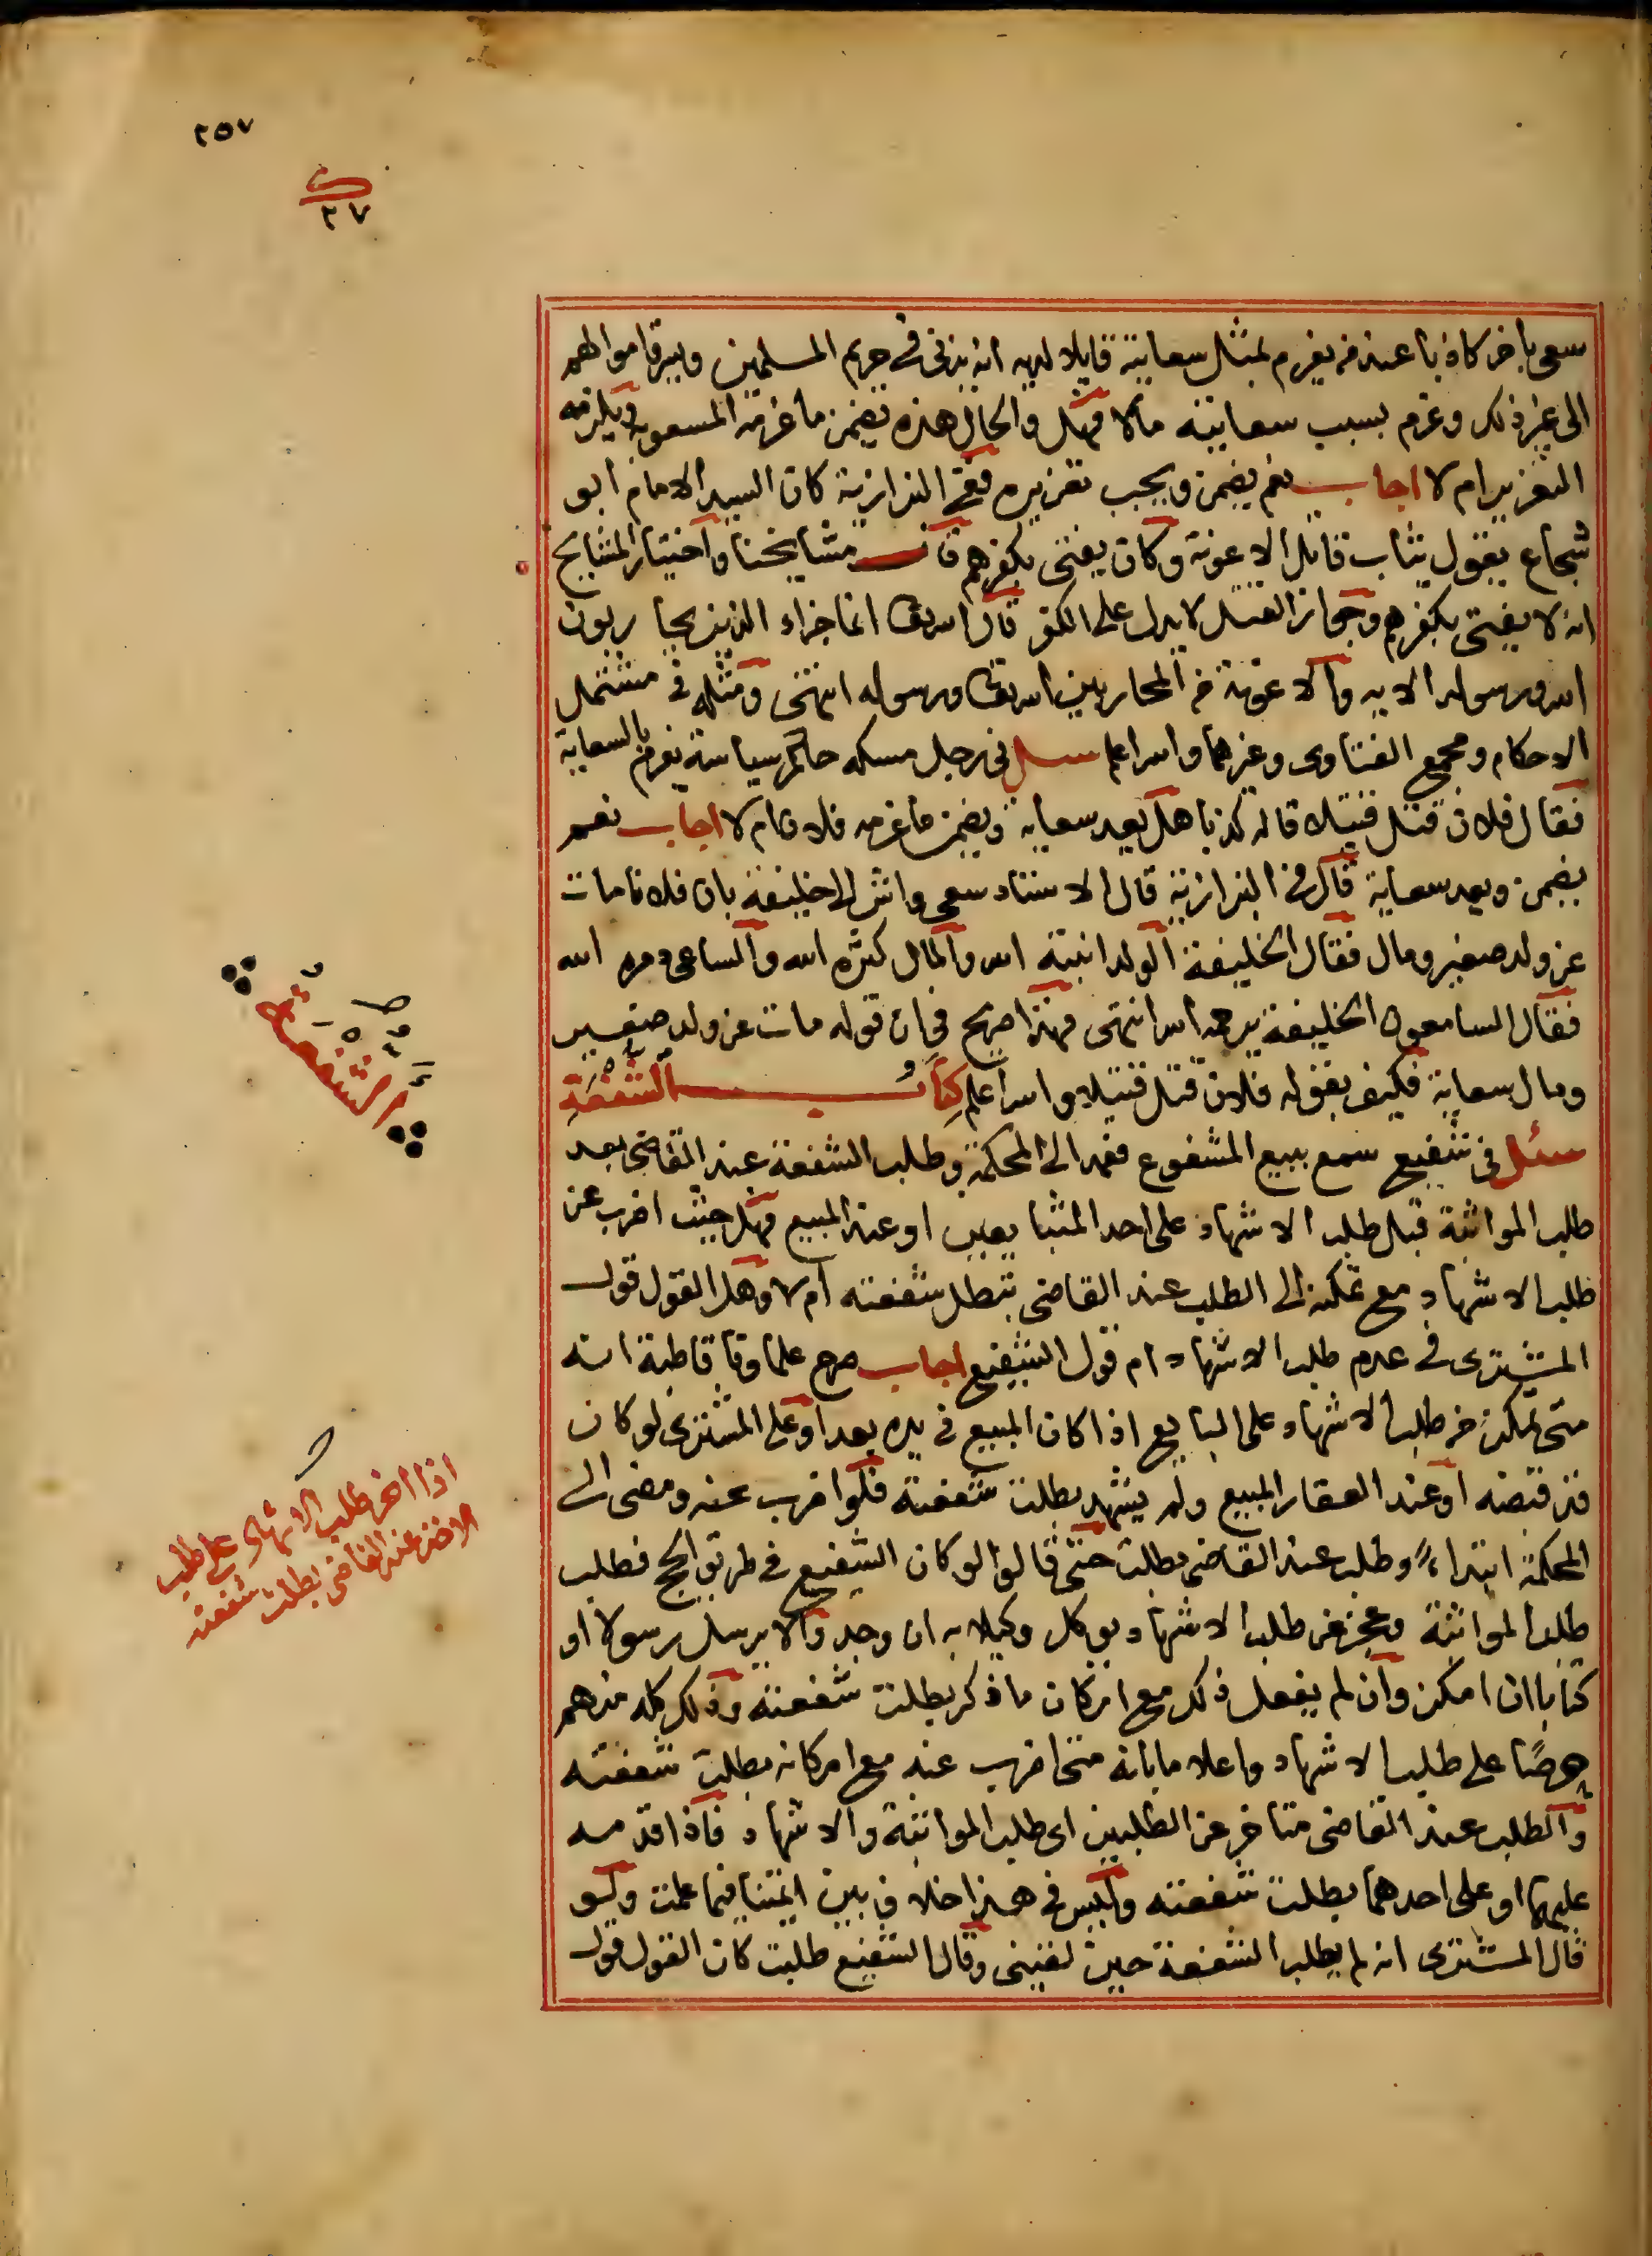 ٢٥٧
٢٧
سعى باخر كاذبا عند من يغرم بمثل سعايته قايلا لديه انه يزنى فى حريم المسلمين ويسرق اموالهم
الى غير ذلك وغرم بسبب سعايته مالا فهل والحال هذه يضمن ما غرمه المسعو به ويلزمه
التعزير ام لا اجاب نعم يضمن ويجب تعزيره ففى البزازية كان السيد الامام ابو
شجاع يقول يثاب قاتل الاعونة وكان يفتى بكفرهم قال مشايخنا واختيار المشايخ
انه لا يفتى بكفرهم وجواز القتل لا يدل على الكفر قال الله تعالى انما جزاء الذين يحاربون
الله ورسوله الاية والاعونة من المحاربين الله تعالى ورسوله انتهى ومثله فى مشتمل
الاحكام ومجمع الفتاوى وغيرهما والله اعلم سئل فى رجل مسكه حاكم سياسة يغرم بالسعاية
فقال فلان قتل قتيلا قاله كذبا هل يعد سعاية ويضمن ما غرمه فلان ام لا اجاب نعم
يضمن ويعد سعاية قال فى البزازية قال الاستاد سعى واش الى خليفة بان فلانا مات
عن ولد صغير ومال فقال الخليفة الولد انبته الله والمال كثره الله والساعى دمره الله
فقال السامعون الخليفة يرحمه الله انتهى فهذا صريح فى ان قوله مات عن ولد صغير
ومال سعاية فكيف بقوله فلان قتل قتيلا والله اعلم كتاب الشفعة
سئل فى شفيع سمع ببيع المشفوع فعمد الى المحكمة وطلب الشفعة عند القاضى بعد
طلب المواثبة قبل طلب الاشهاد على احد المتبايعين او عند المبيع فهل حيث اضرب عن
طلب الاشهاد مع تمكنه الى الطلب عند القاضى تبطل شفعته ام لا وهل القول قول
المشترى فى عدم طلب الاشهاد ام قول الشفيع اجاب صرح علماؤنا قاطبة انه
متى تمكن من طلب الاشهاد على البايع اذا كان المبيع فى يده بعد او على المشترى لو كان
قد قبضه او عند العقار المبيع ولم يشهد بطلت شفعته فلو اضرب عنه ومضى الى
المحكمة ابتداء وطلب عند القاضى بطلت حتى قالوا لو كان الشفيع فى طريق الحج فطلب
طلب المواثبة وعجز عن طلب الاشهاد يوكل وكيلا به ان وجد والا يرسل رسولا او
كتابا ان امكن وان لم يفعل ذلك مع امكان ما ذكر بطلت شفعته وذلك كله منهم
حرصا على طلب الاشهاد واعلاما بانه متى اضرب عنه مع امكانه بطلت شفعته
والطلب عند القاضى متاخر عن الطلبين اى طلب المواثبة والاشهاد فاذا قدمه
عليهما او على احدهما بطلت شفعته وليس فى هذا خلاف بين ائمتنا فيما علمت ولو
قال المشترى انه لم يطلب الشفعة حين لقينى وقال الشفيع طلبت كان القول قول
الشفعة
اذا اخر طلب الاشهاد على طلب
الاخذ عند القاضى بطلت شفعته